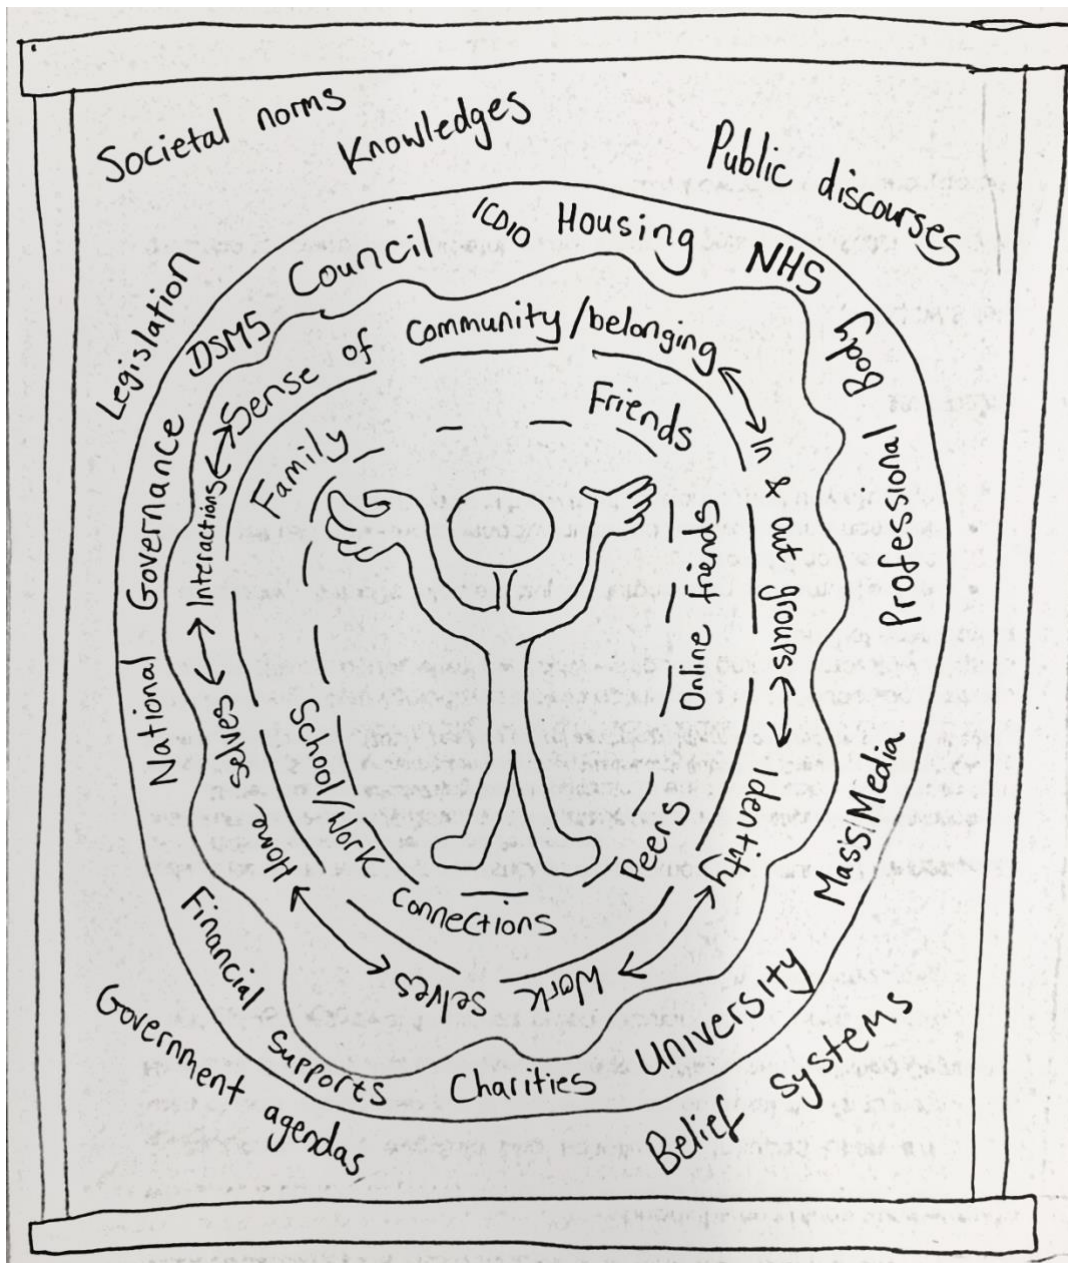 Societal norms
Knowledges
Public discourses
Legislation
Government agendas
Belief Systems
National Governance
DSM5
Council
ICD10
Housing
NHS
Professional Body
Mass Media
University
Charities
Financial supports
Sense of community/belonging
In & out groups
Identity
Work selves
Home selves
Interactions
Family
Friends
Online friends
Peers
Connections
School/Work